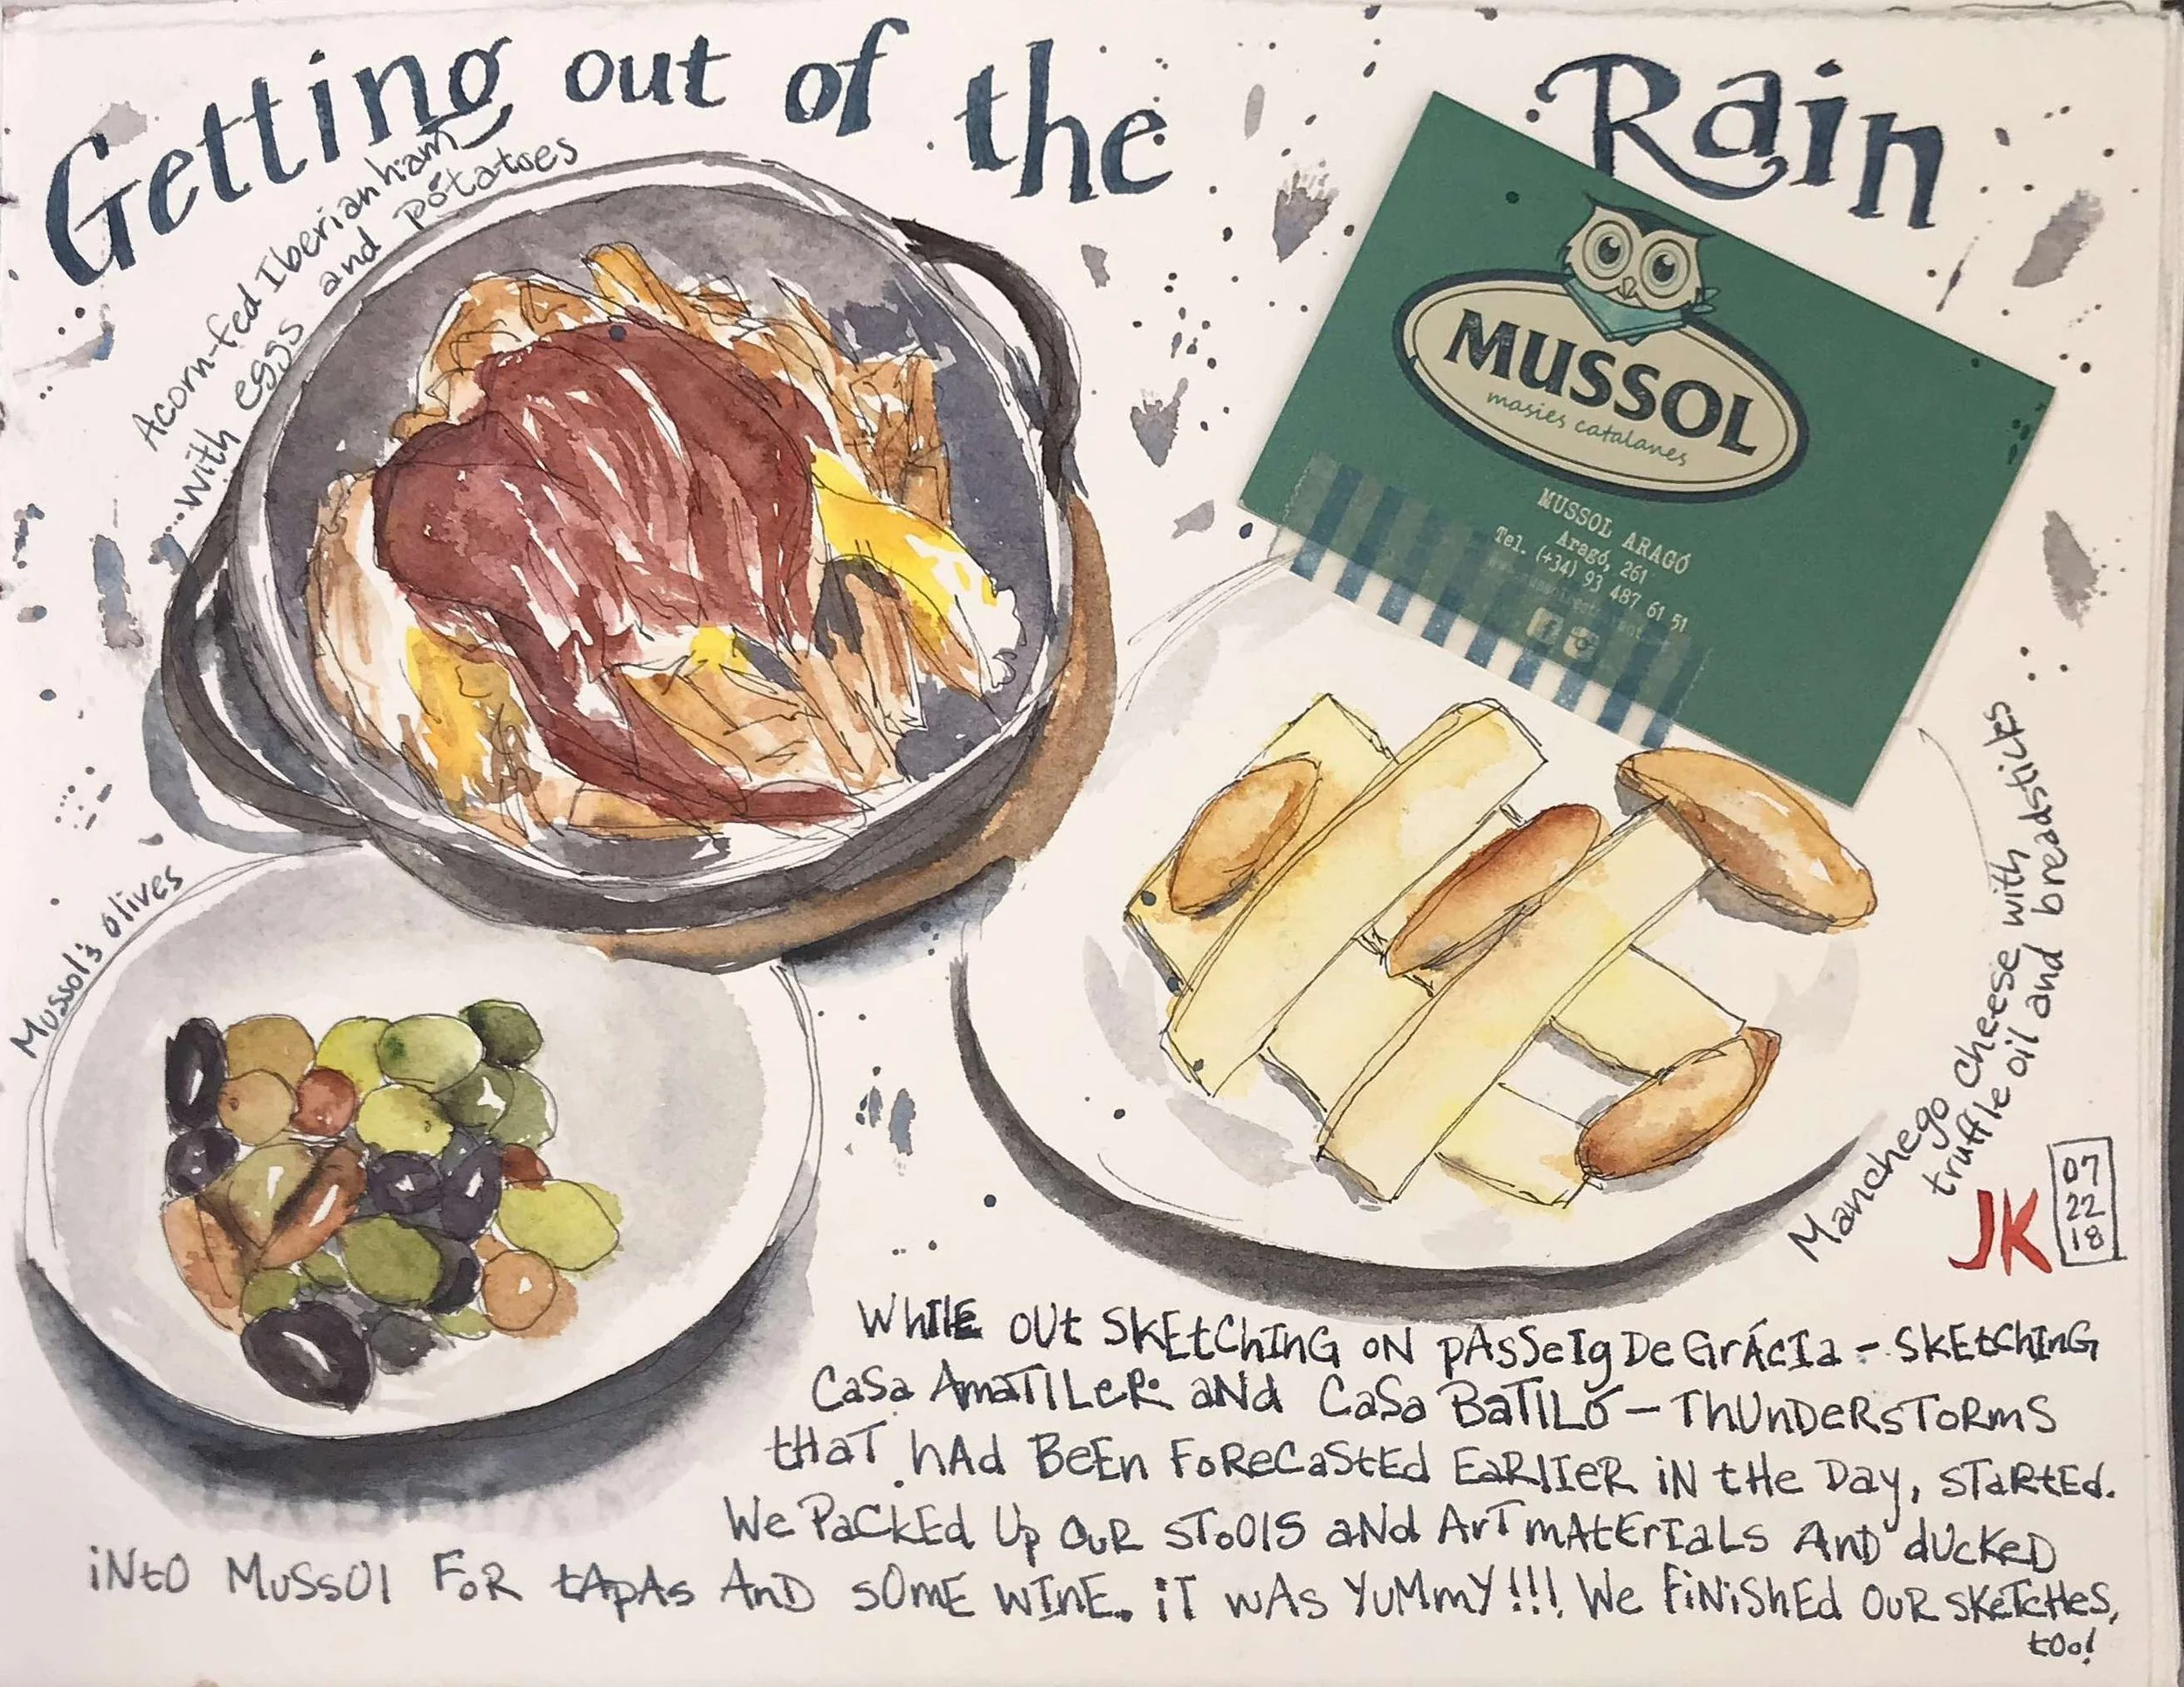 Getting out of the Rain
Acorn-fed Iberian ham
with eggs and potatoes
MUSSOL
masies catalanes
MUSSOL ARAGÓ
Aragó, 261
Tel. (+34) 93 487 61 51
Mussol's olives
Manchego cheese with
truffle oil and breadsticks
JK
07
22
18
WhILE OUt SKEtChInG ON pAsSeIg De GrÁcIa - SKEtChInG
CaSa AmaTlLeR aNd CaSa BaTlLó - ThUnDeRsToRmS
tHaT hAd BeEn FoReCaStEd EaRlIeR iN tHe Day, sTaRtEd.
We PaCkEd Up OuR sToOlS aNd ArT mAtErIaLs AnD dUcKeD
iNtO MuSsOl FoR tApAs AnD sOmE wInE. iT wAs YuMmY!!! We FiNiShEd OuR sKeTcHeS,
tOo!